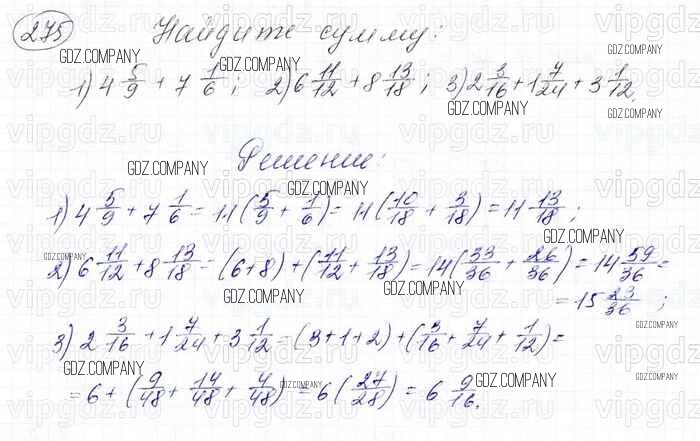 275 Найдите сумму:
1) 4 5/9 + 7 1/6; 2) 6 11/12 + 8 13/18; 3) 2 3/16 + 1 7/24 + 3 1/12.
Решение:
1) 4 5/9 + 7 1/6 = 11 (5/9 + 1/6) = 11 (10/18 + 3/18) = 11 13/18;
2) 6 11/12 + 8 13/18 = (6+8) + (11/12 + 13/18) = 14 (33/36 + 26/36) = 14 59/36 =
= 15 23/36;
3) 2 3/16 + 1 7/24 + 3 1/12 = (3+1+2) + (3/16 + 7/24 + 1/12) =
= 6 + (9/48 + 14/48 + 4/48) = 6 (27/28) = 6 9/16.
GDZ.COMPANY
vipgdz.ru